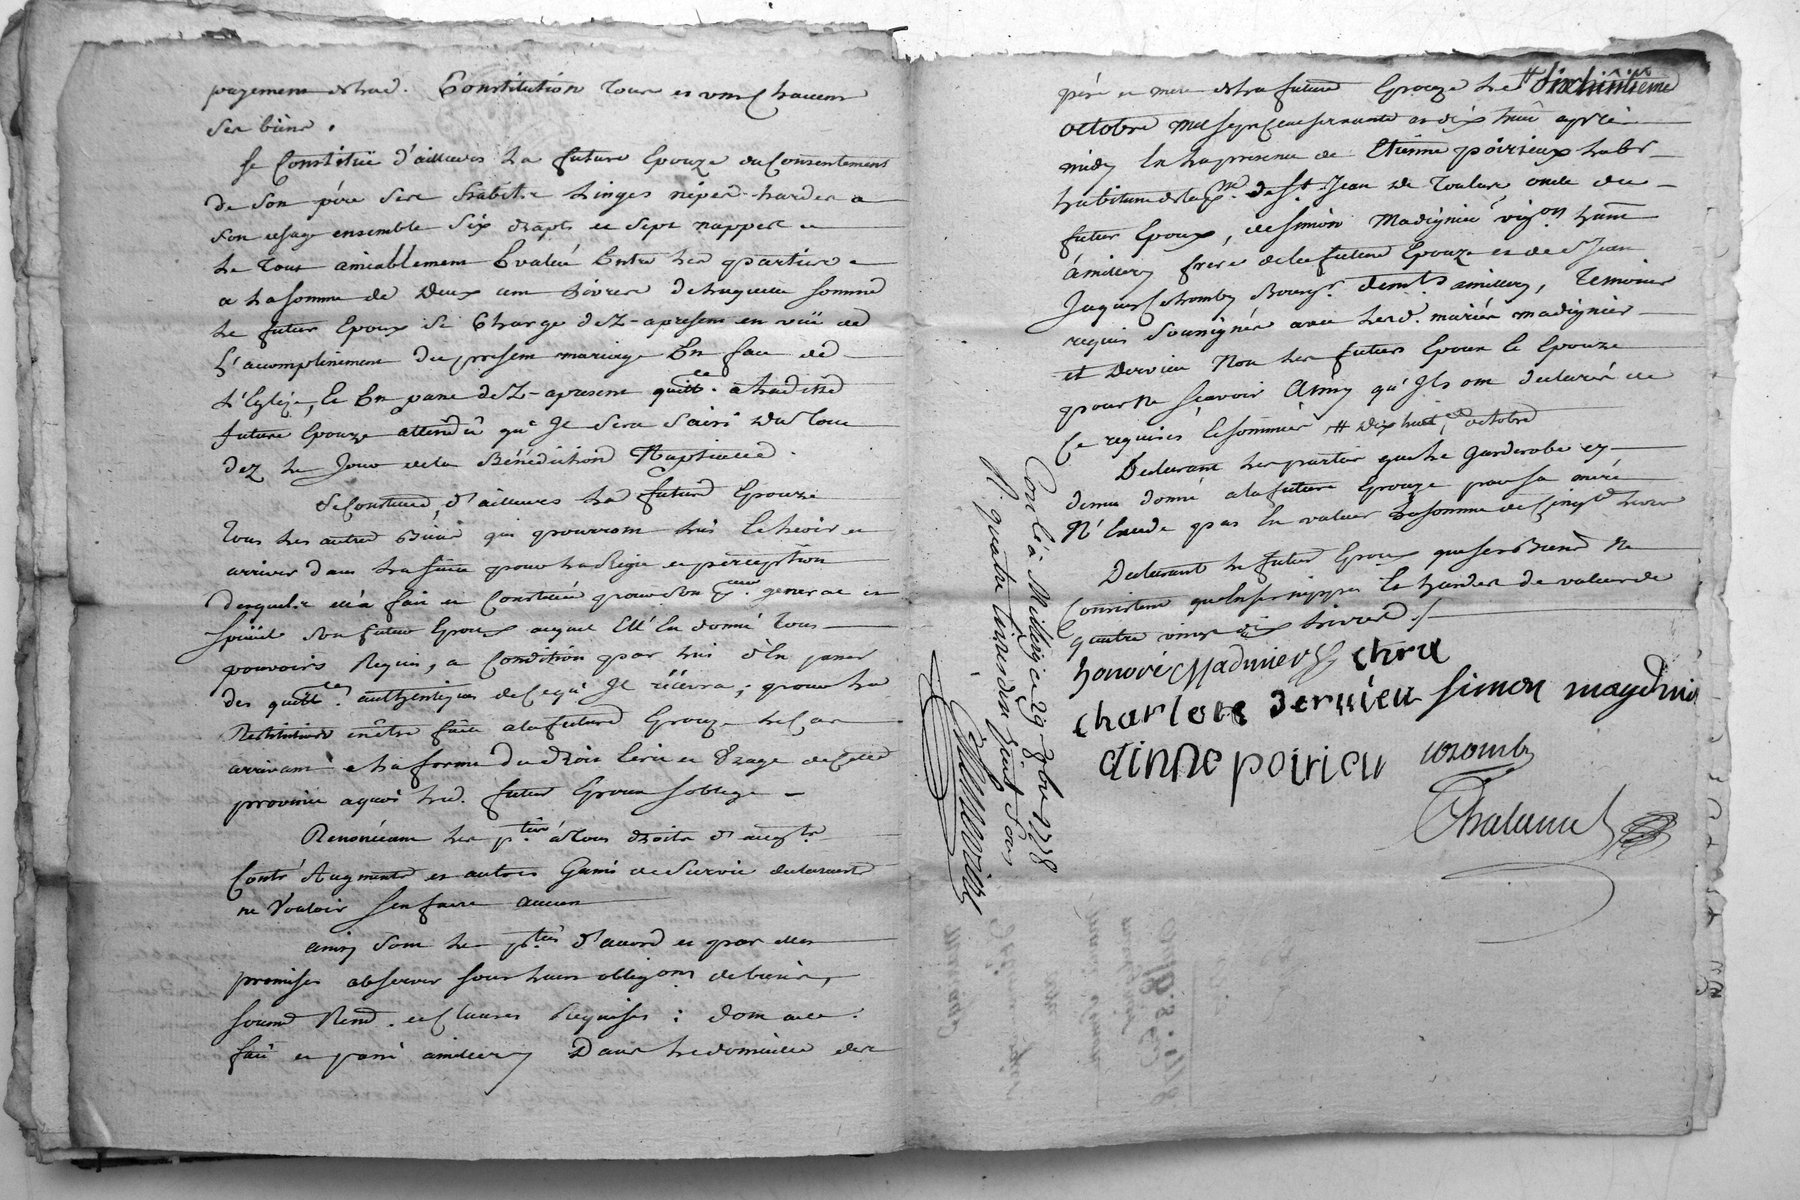 payement de lad. Constitution tous et uns chacuns
ses biens.
Se Constitüe d'ailleurs La future Epouze du Consentement
de son père ses habits Linges nipes hardes a
son usage ensemble Six draps et Sept nappes
Le Tout amiablement Evalué Entre Les parties
a La somme de Deux cent Livres de Laquelle somme
Le futur Epoux se Charge dez-apresent en vüe de
L'acomplissement du present mariage En face de
L'Eglize, Et En passe dez-apresent quitt.ce a Laditte
future Epouze attendû qu'il sera saisi du tout
dez Le Jour de la Bénédiction Nuptialle.
Se Constitue, d'ailleurs La future Epouze
Tous Les autres Biens qui pourront Lui Echeoir et
arriver dans La suitte pour La Regie et perception
desquels elle a fait et Constitué pour son pr.eur general et
special son futur Epoux auquel Elle En donne Tous
pouvoirs Requis, a Condition par Lui d'En passer
des quitt.ces authentiques de Ce qu'il recevra; pour La
Restitution en être faite a la future Epouze Le Cas
arrivant a La forme du droit Ecrit et Uzage de Cette
province a quoi Led. futur Epoux s'oblige
Renonceant Les p.ties a tous droits d'augt.
Contr'Augment et autres Gains de Survie declarants
ne Vouloir s'en faire aucun
ainsy sont Les p.ties d'acord et par elles
promises observer sous Leurs oblig.ons de biens,
soum.s Renon. et Clauses Requises: dont acte
fait et passé a millery Dans Le domicille des
père et mere de La future Epouze Le # dixhuitieme
octobre mil sept Cent soixante et dix huit après
midy En La presence de Etienne poirieux
habitant de la p.sse de St. Jean de Toulas oncle du
futur Epoux, de Simon Madignier vigon habt
a millery frere de la future Epouze et de Sr Jean
Jaques Colomby Bourg.s demt. a millery, Temoins
requis soussignés avec Lesd. mariés madignier
et Dervieu Non Les futurs Epoux Et Epouze
pour ne sçavoir Ainsy qu'ils ont declaré de
Ce requis et sommés # dix huit octobre
Declarant Les parties que Le garderobe cy
dessus donné a la future Epouze par sa mere
N'Excede pas En valeur La somme de Cinq.te Livres
Declarant le futur Epoux que ses Biens Ne
Consistent qu'En ses nippes Et hardes de valeur de
quatre vingt dix Livres ./.
charlote dervieu simon maydnie
etinne poirieu colomby
Chalumel
Conlé a Millery ce 29 8bre 1778
R. quatre Livres dix huit sous